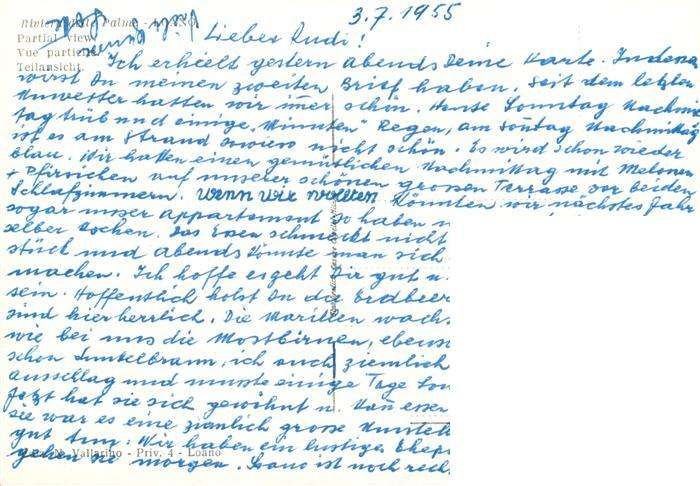 3.7.1955
Partial view
Vue partielle
Teilansicht.
Lieber Rudi!
Ich erhielt gestern abends Deine Karte. Indessen
wirst Du meinen zweiten Brief haben. Seit dem letzten
Unwetter hatten wir immer schön. Heute Sonntag Nachmit
tag trüb und einige „Minuten" Regen, am Sonntag Nachmittag
ist es am Strand sowieso nicht schön. Es wird schon wieder
blau. Wir hatten einen gemütlichen Nachmittag mit Melonen
+ Pfirsichen auf unserer schönen grossen Terrasse vor beiden
Schlafzimmern. Wenn wir wollten könnten wir nächstes Jahr
sogar unser Appartement so haben
selber kochen. Das Essen schmeckt nicht
stück und abends könnte man sich
machen. Ich hoffe es geht Dir gut
sein. Hoffentlich holst Du die Erdbeer
sind hier herrlich. Die Marillen wachs
wie bei uns die Mostbirnen, ebenso
schon dunkelbraun, ich auch ziemlich
Ausschlag und musste einige Tage
Jetzt hat sie sich gewöhnt u. kann essen
sie war es eine ziemlich grosse Umstell
gut tun. Wir haben ein lustiges Ehep
gehen sie morgen. ist noch
Vallarino - Priv. 4 - Loano